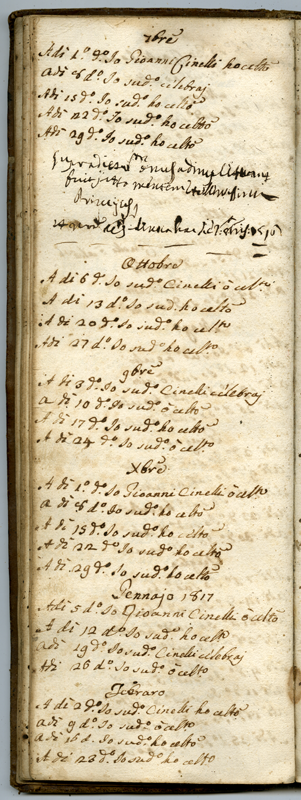 7bre
A di 1.° d.° Io Gioanni Cinelli ho celto
a di 8 d.° Io sud.° celebraj
A di 15 d.° Io sud.° ho celto
A di 22 d.° Io sud.° ho celto
A di 29 d.° Io sud.° ho celto
Ottobre
A di 6 d.° Io sud.° Cinelli ò celto
A di 13 d.° Io sud.° ho celto
A di 20 d.° Io sud.° ho celto
A di 27 d.° Io sud.° ho celto
9bre
A di 3 d.° Io sud.° Cinelli celebraj
a di 10 d.° Io sud.° ò celto
A di 17 d.° Io sud.° ho celto
A di 24 d.° Io sud.° ò celto
Xbre
A di 1.° d.° Io Gioanni Cinelli ò celto
a di 8 d.° Io sud.° ho celto
A di 15 d.° Io sud.° ho celto
A di 22 d.° Io sud.° ho celto
A di 29 d.° Io sud.° ho celto
Gennajo 1817
A di 5 d.° Io Gioanni Cinelli ò celto
A di 12 d.° Io sud.° ho celto
a di 19 d.° Io sud.° Cinelli celebraj
A di 26 d.° Io sud.° ò celto
Febraro
A di 2 d.° Io sud.° Cinelli ho celto
a di 9 d.° Io sud.° ò celto
a di 16 d. Io sud.° ho celto
A di 23 d.° Io sud.° ho celto